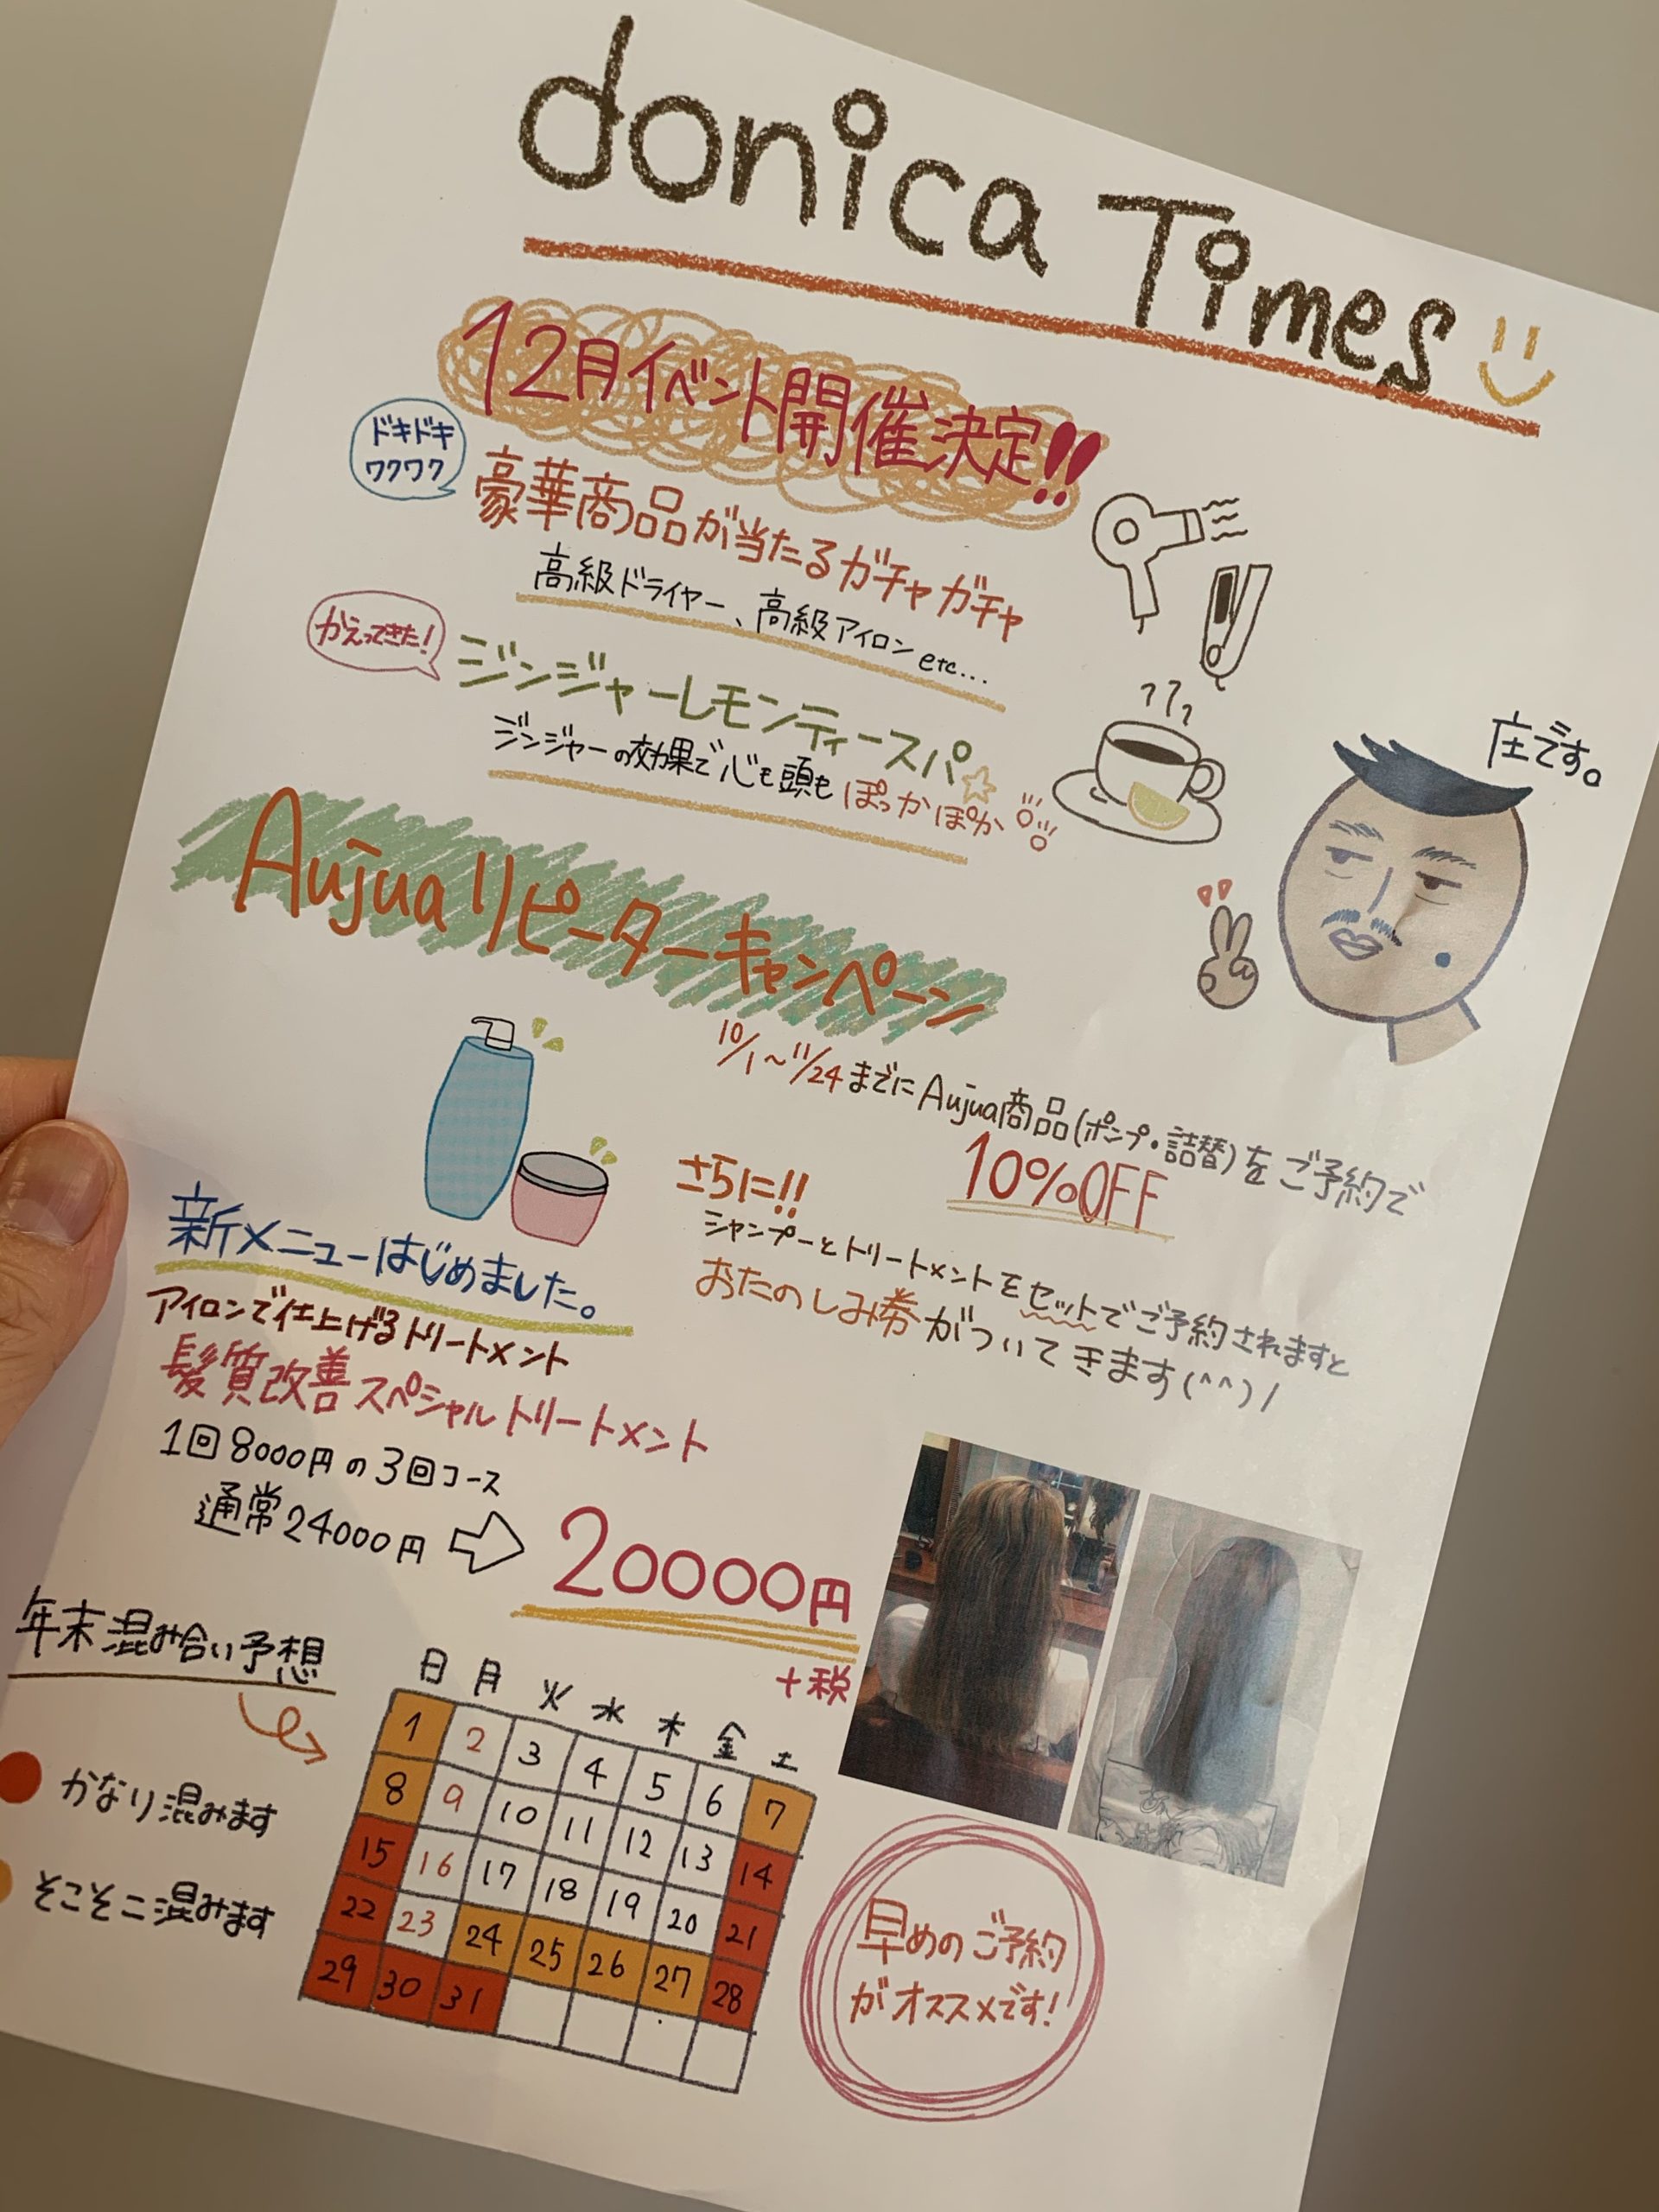 donica Times
12月イベント開催決定!!
ドキドキ
ワクワク
豪華商品が当たるガチャガチャ
高級ドライヤー、高級アイロンetc...
かえってきた!
ジンジャーレモンティースパ☆
ジンジャーの効果で心も頭もぽっかぽか
庄です。
Aujuaリピーターキャンペーン
10/1〜11/24までにAujua商品(ポンプ・詰替)をご予約で
10%OFF
さらに!!
シャンプーとトリートメントをセットでご予約されますと
おたのしみ券がついてきます(^^)/
新メニューはじめました。
アイロンで仕上げるトリートメント
髪質改善スペシャルトリートメント
1回8000円の3回コース
通常24000円⇨20000円
+税
年末混み合い予想
かなり混みます
そこそこ混みます
日 月 火 水 木 金 土
1 2 3 4 5 6 7
8 9 10 11 12 13 14
15 16 17 18 19 20 21
22 23 24 25 26 27 28
29 30 31
早めのご予約
がオススメです!